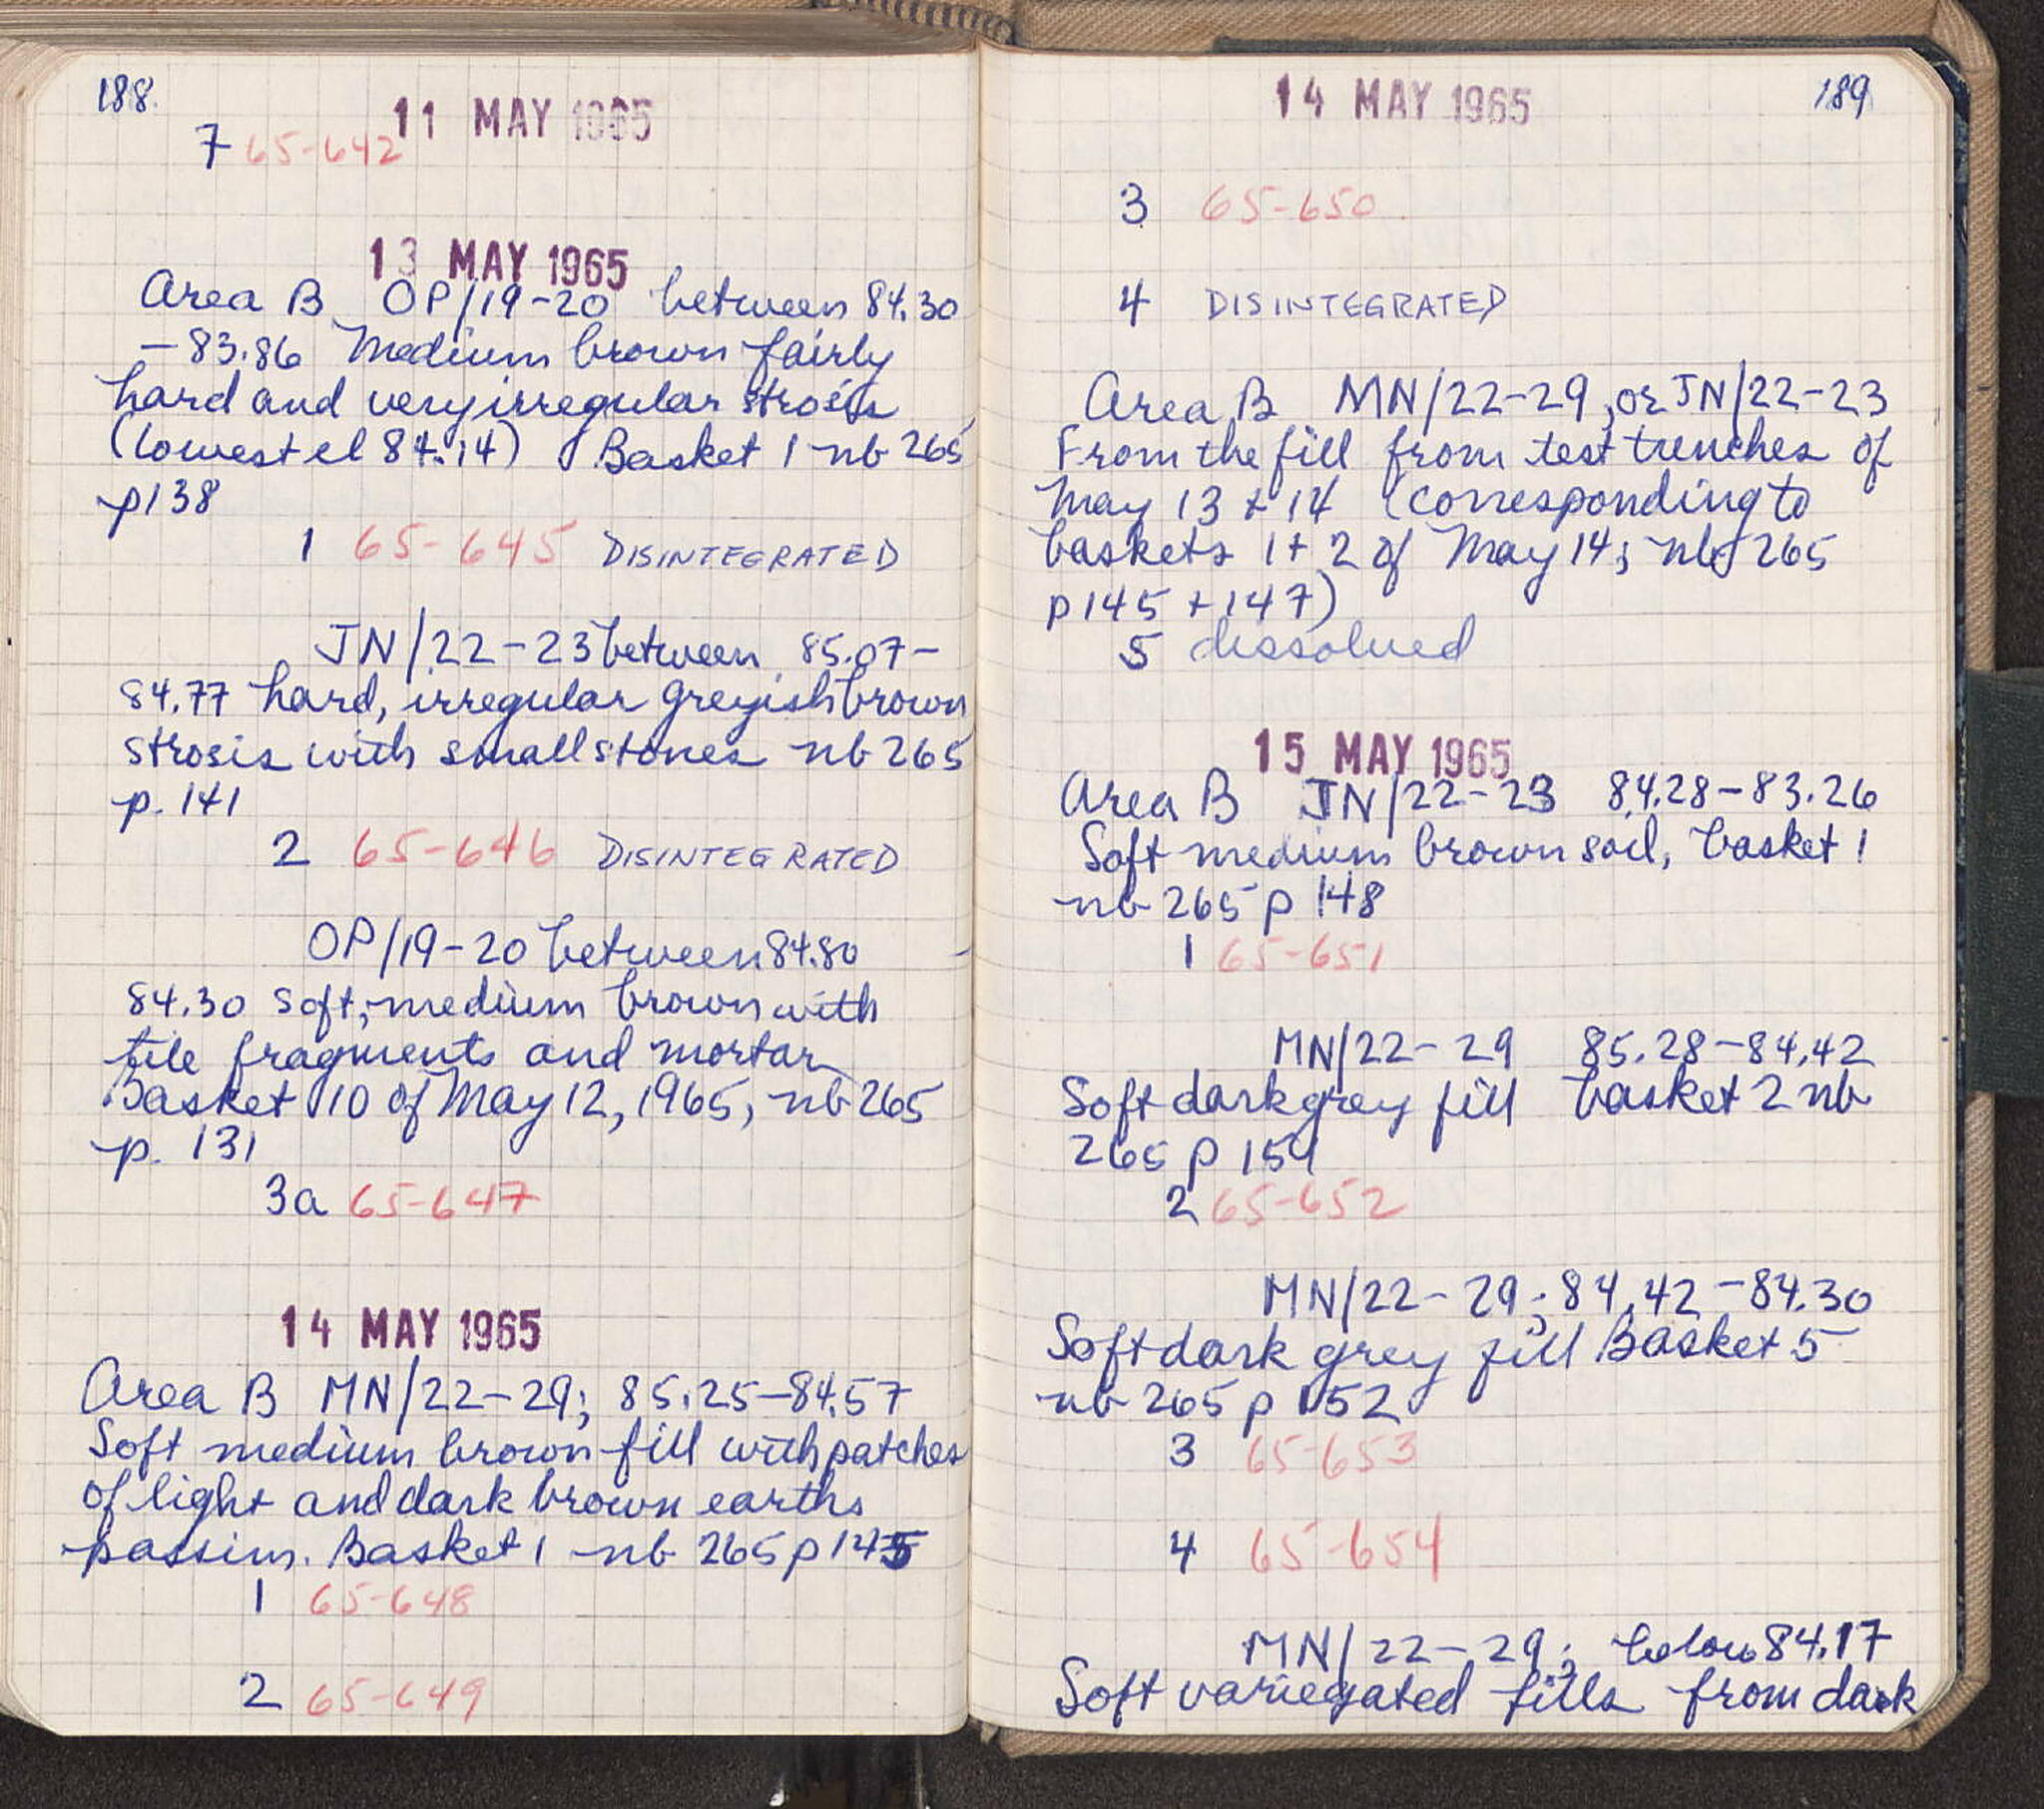 188
11 MAY 1965
7 65-642
13 MAY 1965
Area B OP/19-20 between 84.30
-83.86 Medium brown fairly
hard and very irregular strosis
(lowest el 84.14) Basket 1 nb 265
p138
1 65-645 DISINTEGRATED
JN/22-23 between 85.07-
84.77 hard, irregular greyish brown
strosis with small stones nb 265
p. 141
2 65-646 DISINTEGRATED
OP/19-20 between 84.80 -
84.30 soft, medium brown with
tile fragments and mortar
Basket 10 of May 12, 1965, nb 265
p. 131
3a 65-647
14 MAY 1965
Area B MN/22-29; 85.25-84.57
Soft medium brown fill with patches
of light and dark brown earths
passim. Basket 1 nb 265 p 145
1 65-648
2 65-649
14 MAY 1965
189
3 65-650
4 DISINTEGRATED
Area B MN/22-29, or JN/22-23
From the fill from test trenches of
May 13 + 14 (corresponding to
baskets 1+2 of May 14; nb 265
p 145 + 147)
5 dissolved
15 MAY 1965
Area B JN/22-23 84.28-83.26
Soft medium brown soil, basket 1
nb 265 p 148
1 65-651
MN/22-29 85.28-84.42
Soft dark grey fill basket 2 nb
265 p 151
2 65-652
MN/22-29; 84.42-84.30
Soft dark grey fill Basket 5
nb 265 p 152
3 65-653
4 65-654
MN/22-29; below 84.17
Soft variegated fills from dark